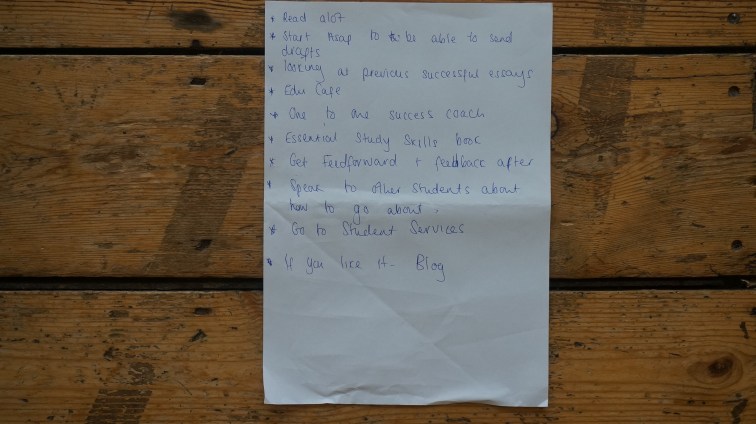 * Read alot
* Start Asap to be able to send
drafts
* looking at previous successful essays
* Edu Cafe
* One to one success coach
* Essential Study Skills book
* Get Feedforward + feedback after
* Speak to other students about
how to go about.
* Go to Student Services
* If you like it - Blog